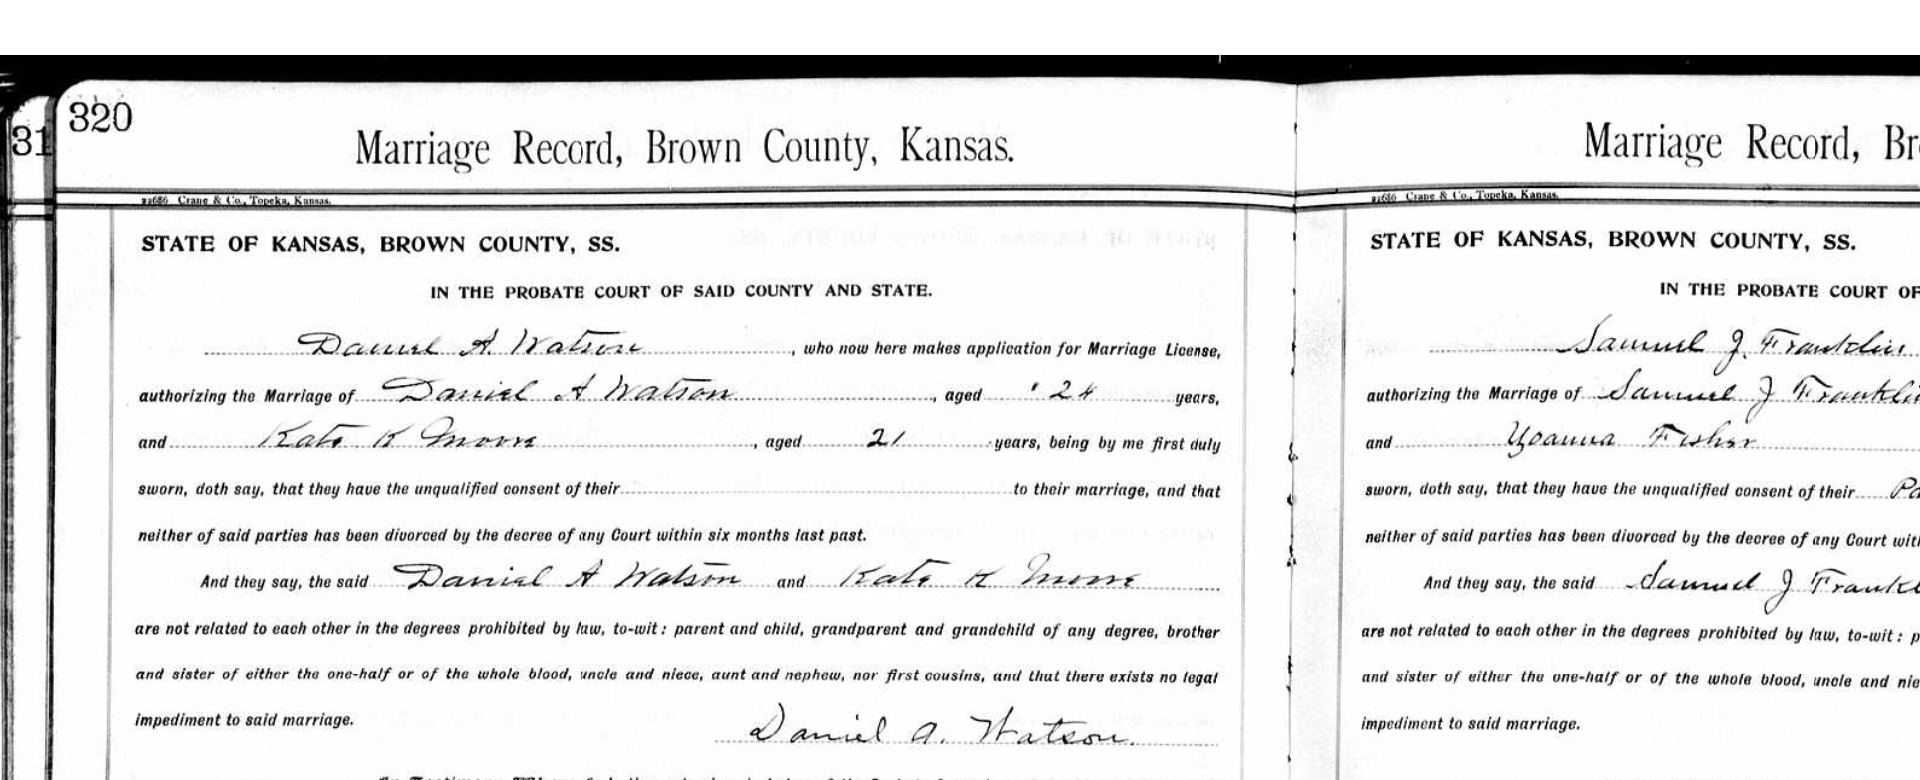 31
320
Marriage Record, Brown County, Kansas.
Crane & Co., Topeka, Kansas.
STATE OF KANSAS, BROWN COUNTY, SS.
IN THE PROBATE COURT OF SAID COUNTY AND STATE.
Daniel A Watson, who now here makes application for Marriage License,
authorizing the Marriage of Daniel A Watson, aged 24 years,
and Kate K Moore, aged 21 years, being by me first duly
sworn, doth say, that they have the unqualified consent of their to their marriage, and that
neither of said parties has been divorced by the decree of any Court within six months last past.
And they say, the said Daniel A Watson and Kate K Moore
are not related to each other in the degrees prohibited by law, to-wit: parent and child, grandparent and grandchild of any degree, brother
and sister of either the one-half or of the whole blood, uncle and niece, aunt and nephew, nor first cousins, and that there exists no legal
impediment to said marriage.
Daniel A. Watson.
Marriage Record, Br
Crane & Co., Topeka, Kansas.
STATE OF KANSAS, BROWN COUNTY, SS.
IN THE PROBATE COURT OF
Samuel J. Franklin
authorizing the Marriage of Samuel J Franklin
and Yoanna Fisher
sworn, doth say, that they have the unqualified consent of their Pa
neither of said parties has been divorced by the decree of any Court with
And they say, the said Samuel J Frankl
are not related to each other in the degrees prohibited by law, to-wit: p
and sister of either the one-half or of the whole blood, uncle and nie
impediment to said marriage.